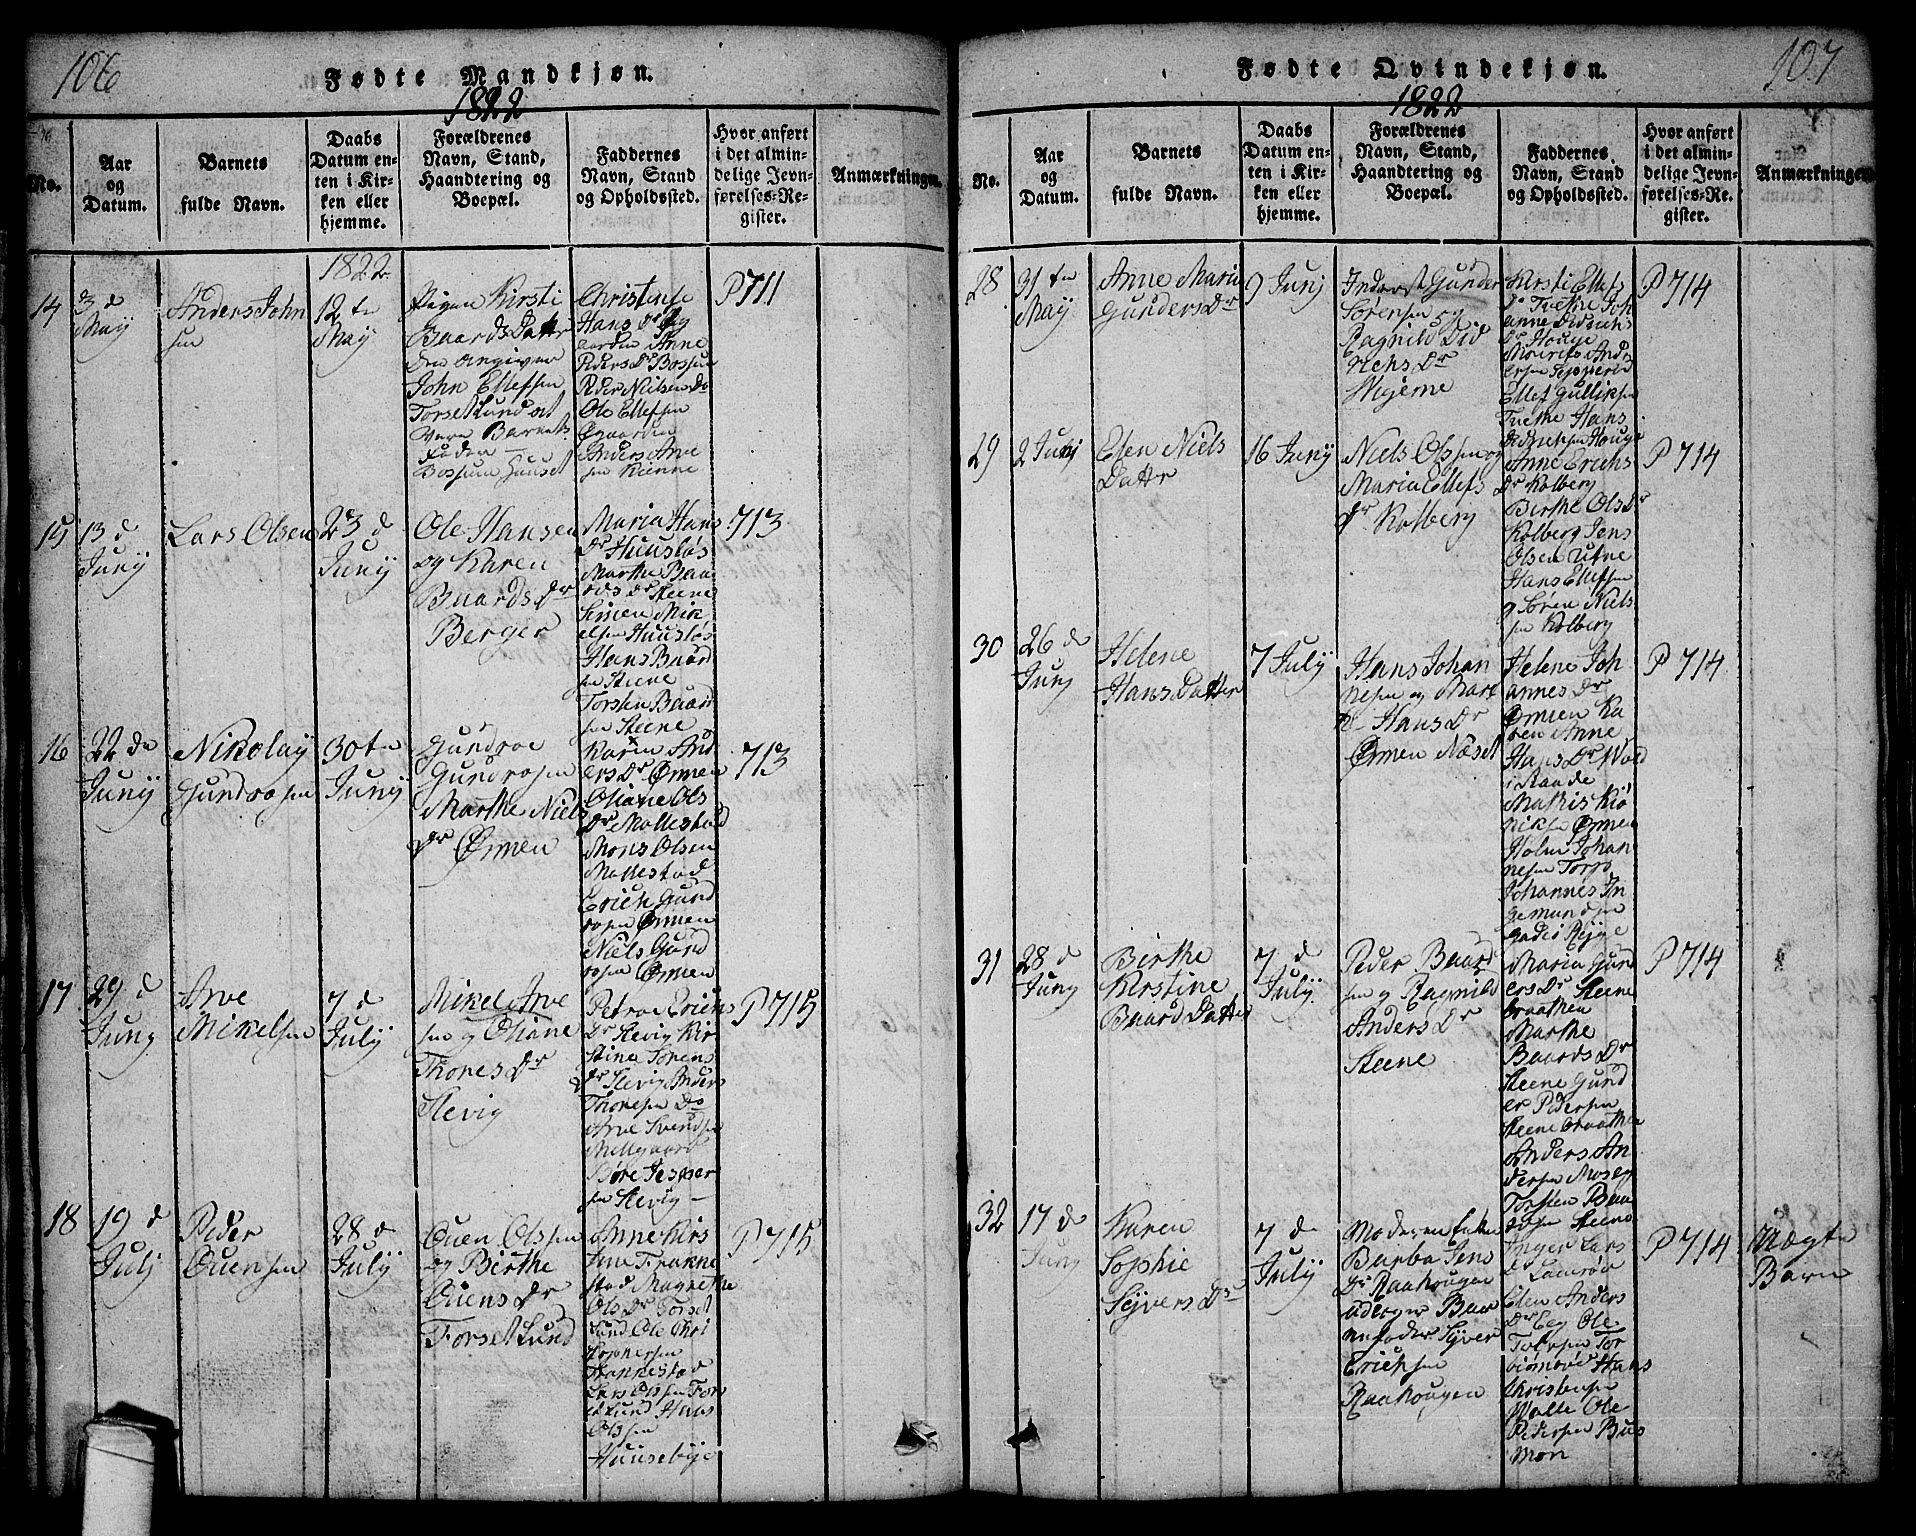 106
Fødte Mandkjøn.
1822
No.
Aar
og
Datum.
Barnets
fulde Navn.
Daabs
Datum en-
ten i Kir-
ken eller
hjemme.
Forældrenes
Navn, Stand,
Haandtering og
Boepæl.
Faddernes
Navn, Stand
og Opholdssted.
Hvor anført
i det almin-
delige Jevn-
førelses-Re-
gister.
Anmærkninger.
14
3 d
May
Anders John
sen
1822
12 te
May
Pigen Kirsti
Baards Datter
den angiver
John Ellefsen
Torsetlund at
være Barnets
Fader
Bossum Huuset
Christense
Hans Dr
Anne
Peders Dr Bossum
Peder Nielsen Do
Ole Ellefsen
Anders Arve
sen Kienne
P 711
15
13 d
Juny
Lars Olsen
23 d
Juny
Ole Hansen
og Karen
Baards Dr
Berger
Maria Hans
Dr Huusløs
Marthe Baa
rds Dr Steene
Simen Mik
elsen Huusløs
Hans Baard
sen Steene
Torsten Baard
sen Steene
713
16
22 de
Juny
Nikolay
Gundrosen
30 te
Juny
Gundroe
Gundrosen
Marthe Niels
Dr Ørmen
Karen And
ers Dr Ørmen
Oliane Ols
Dr Mollestad
Mons Olsen
Mollestad
Erich Gund
rosen Ørmen
Niels Gund
rosen Ørmen
713
17
29 d
Juny
Arve
Mikelsen
7 d
July
Mikel Arve
sen og Oliane
Thores Dr
Slevig
Petroe Erichs
Dr Slevig Kir
stine Torens
Dr Slevig Anders
Thoresen Do
Arve Svendsen
Mellgaard
Børe Jesper
sen Slevig
P 715
18
19 d
July
Peder
Ouensen
28 d
July
Ouen Olssen
og Birthe
Ouens Dr
Torsetlund
Anne Kirs
tine Frakne
stad Magrethe
Ols Dr Torset
lund Ole Chri
stophersen
Hannestad
Lars Olssen Tors
etlund Hans
Olssen
Huusebye
P 715
107
Fødte Qvindekjøn.
1822
No.
Aar
og
Datum.
Barnets
fulde Navn.
Daabs
Datum en-
ten i Kir-
ken eller
hjemme.
Forældrenes
Navn, Stand,
Haandtering og
Boepæl.
Faddernes
Navn, Stand
og Opholdssted.
Hvor anført
i det almin-
delige Jevn-
førelses-Re-
gister.
Anmærkninger
28
31 te
May
Anne Marie
Gunders Dr
9 Juny
Inderst Gunder
Sørensen og
Ragnild Did
richs Dr
Hjerne
Kirsti Ellefs
Dr Tvethe Joh
anne Didrichs
Dr Houge
Mourits And
ersen
Ellef Gulliksen
Tvethe Hans
Didrichsen Houge
P 714
29
2 Juny
Elen Niels
Datter
16 Juny
Niels Olssen og
Maria Ellefs
Dr Kolberg
Anne Erichs
Dr Kolberg
Birthe Ols Dr
Kolberg Jens
Olsen Utne
Hans Ellefsen
og Søren Niels
sen Kolberg
P 714
30
26 de
Juny
Helene
Hans Datter
7 July
Hans Johan
nesen og Mart
he Hans Dr
Ørmen Næset
Helene Joh
annes Dr
Ørmen Ka
ren Anne
Hans Dr Wold
i Raade
Mathis Kiø
niksen Ørmen
Holm Johan
nesen Torp
Johannes In
gemundsen
Gade i Rygge
P 714
31
28 d
Juny
Birthe
Kirstine
Baard Datter
7 d
July
Peder Baard
sen og Ragnild
Anders Dr
Steene
Maria Gun
ers Dr Steene
braathen
Marthe
Baards Dr
Steene Gund
er Pedersen
Steene braathen
Anders An
dersen Moseg
Torsten Baa
rdsen Steene
P 714
32
17 de
Juny
Karen
Sophie
Syvers Dr
7 de
July
Moderen Enken
Barba Jens
Dr Raahougen
udlagt Bar
nefader Syver
Erichsen
Raahougen
Inger Lars
Dr
Elen Anders
Dr Eeg Ole
Tolersen Tor
Hans
Christensen
Walle Ole
Pedersen Bus
mon
P 714
Uægte
Barn